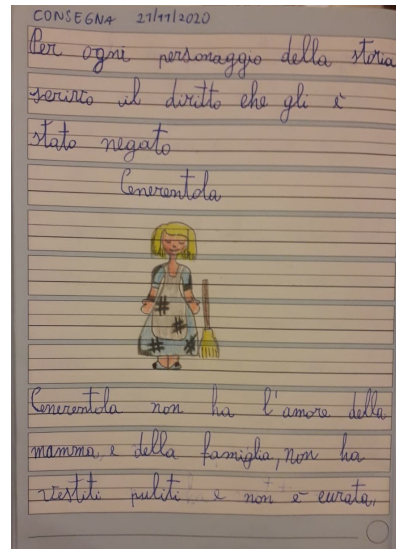 CONSEGNA 21/11/2020
Per ogni personaggio della storia
scrivo il diritto che gli è
stato negato
Cenerentola
Cenerentola non ha l'amore della
mamma e della famiglia, non ha
vestiti puliti e non è curata.